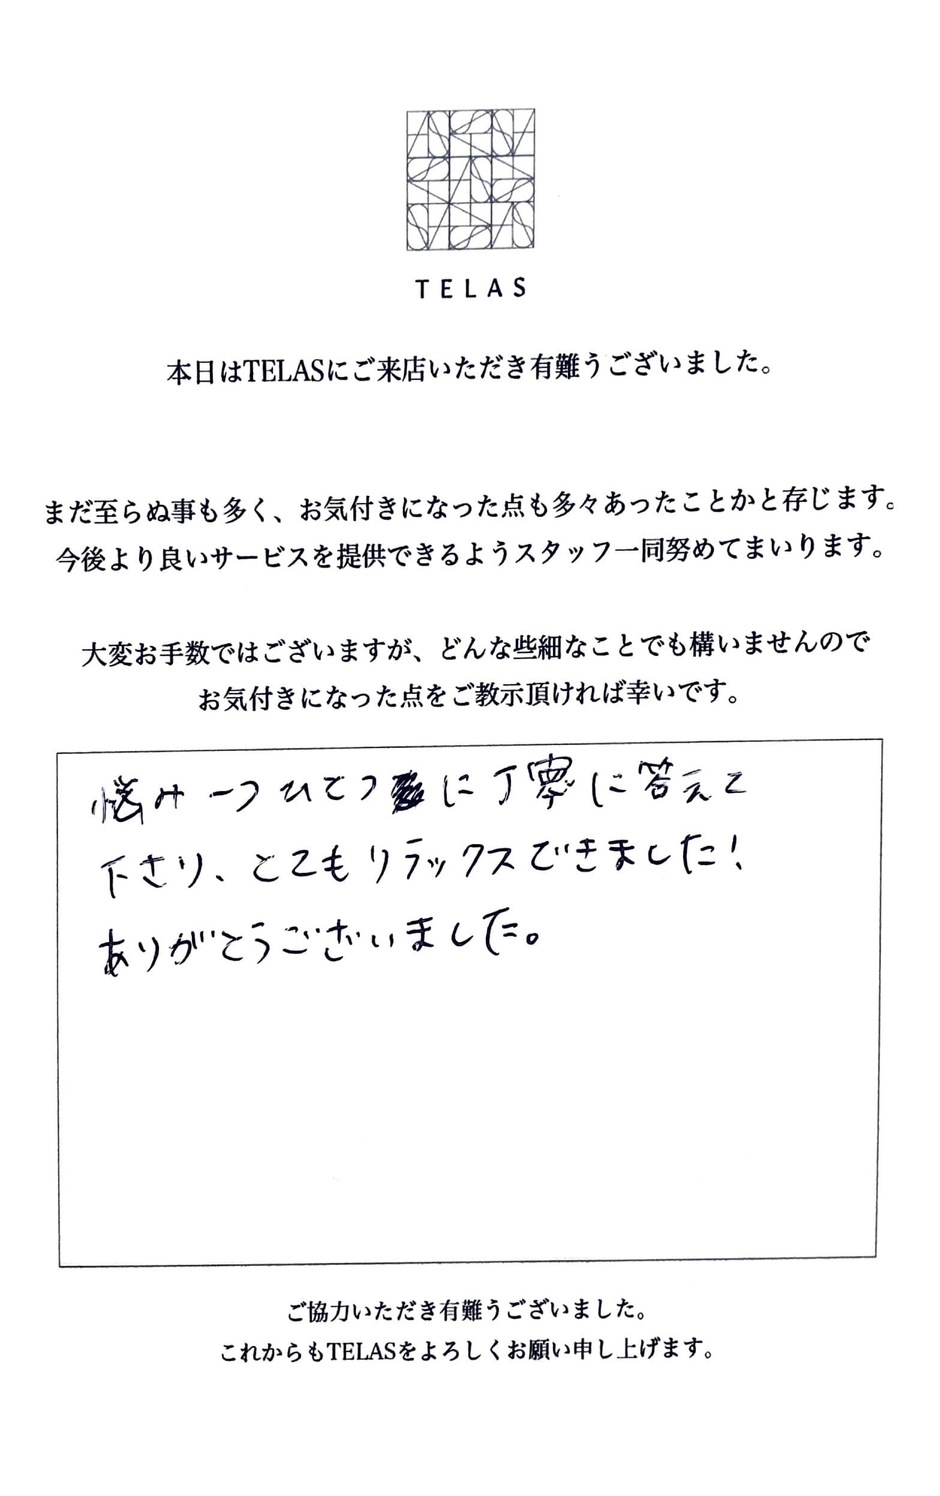 TELAS
本日はTELASにご来店いただき有難うございました。
まだ至らぬ事も多く、お気付きになった点も多々あったことかと存じます。
今後より良いサービスを提供できるようスタッフ一同努めてまいります。
大変お手数ではございますが、どんな些細なことでも構いませんので
お気付きになった点をご教示頂ければ幸いです。
悩み一つひとつに丁寧に答えて
下さり、とてもリラックスできました!
ありがとうございました。
ご協力いただき有難うございました。
これからもTELASをよろしくお願い申し上げます。